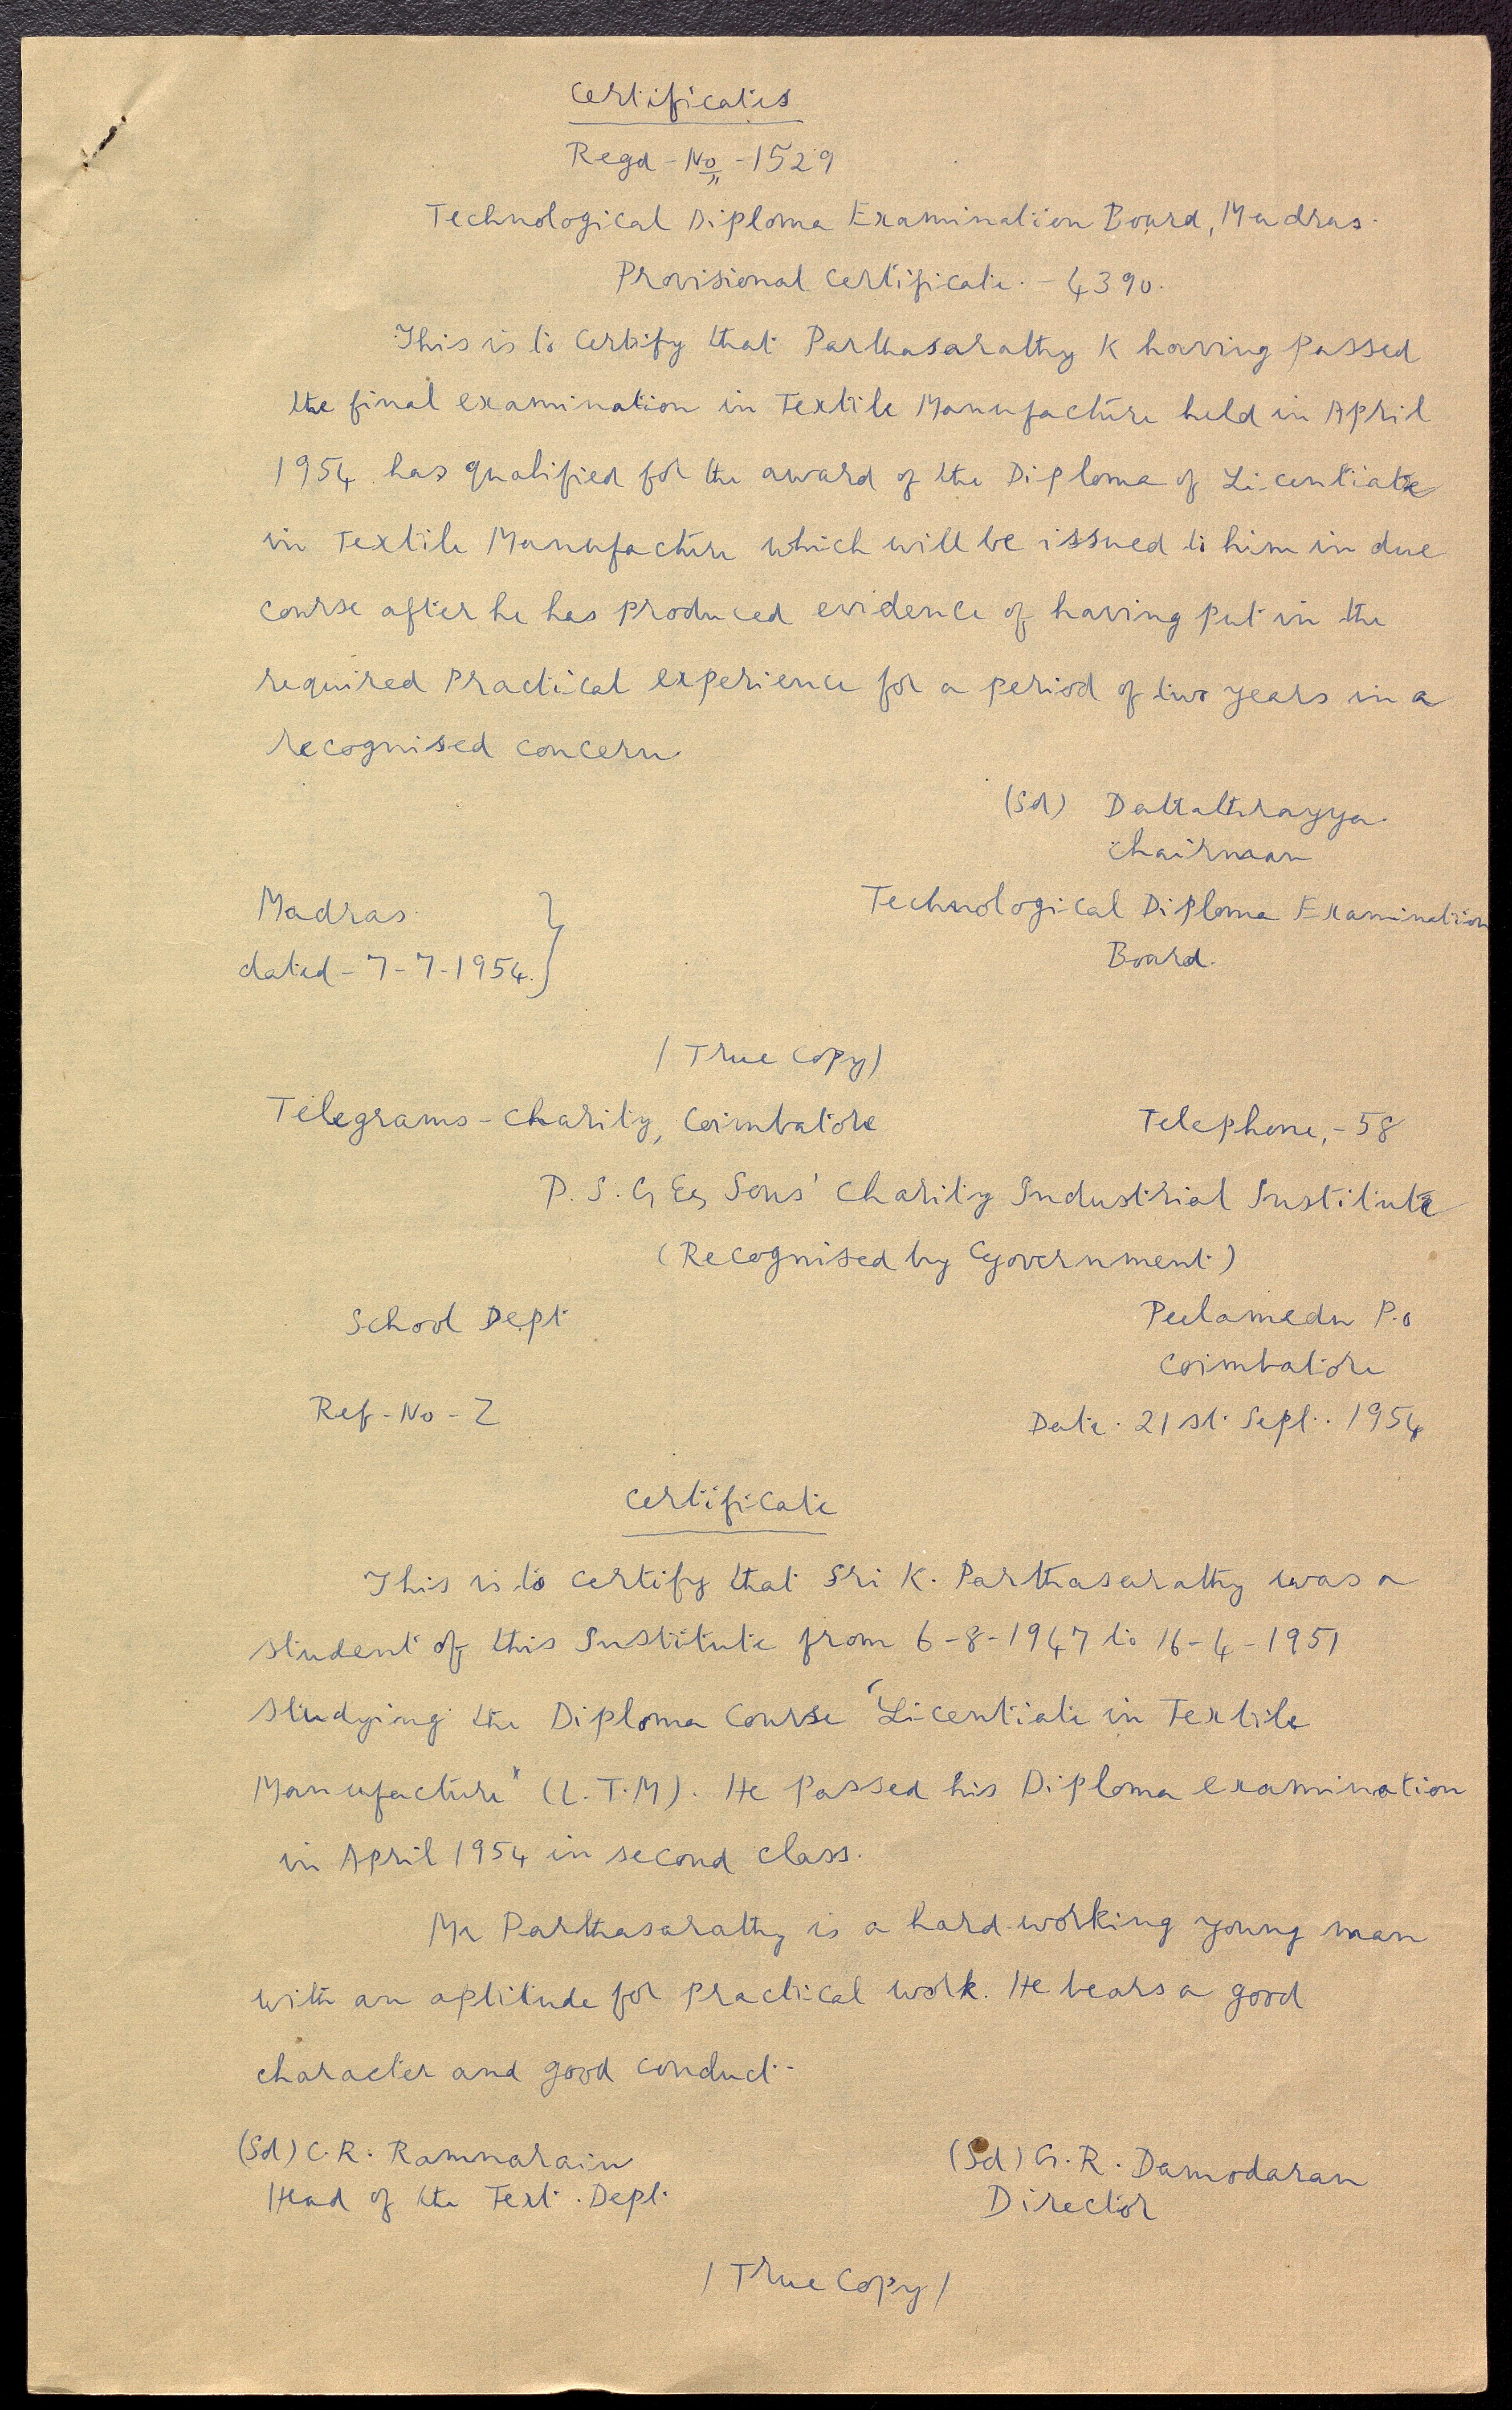 Certificates
Regd - No - 1529
Technological Diploma Examination Board, Madras.
Provisional Certificate. - 4390.
This is to Certify that Parthasarathy K having passed
the final examination in Textile Manufacture held in April
1954 has qualified for the award of the Diploma of Licentiate
in Textile Manufacture which will be issued to him in due
course after he has produced evidence of having put in the
required Practical experience for a period of two years in a
recognised concern.
(Sd) Dattathrayya.
Chairman
Madras.
Technological Diploma Examination
dated - 7-7-1954.
Board.
/ True Copy /
Telegrams - Charity, Coimbatore
Telephone, - 58
P. S. G & Sons' Charity Industrial Institute
(Recognised by Government)
School Dept
Peelamedu P.o
Coimbatore
Ref - No - Z
Date. 21 st. Sept.. 1954
Certificate
This is to certify that Sri K. Parthasarathy was a
student of this Institute from 6-8-1947 to 16-4-1951
studying the Diploma Course "Licentiate in Textile
Manufacture" (L.T.M). He passed his Diploma examination
in April 1954 in second class.
Mr Parthasarathy is a hard-working young man
with an aptitude for practical work. He bears a good
character and good conduct.-
(Sd) C.R. Ramnarain
(Sd) G.R. Damodaran
Head of the Text. Dept.
Director
/ True Copy /